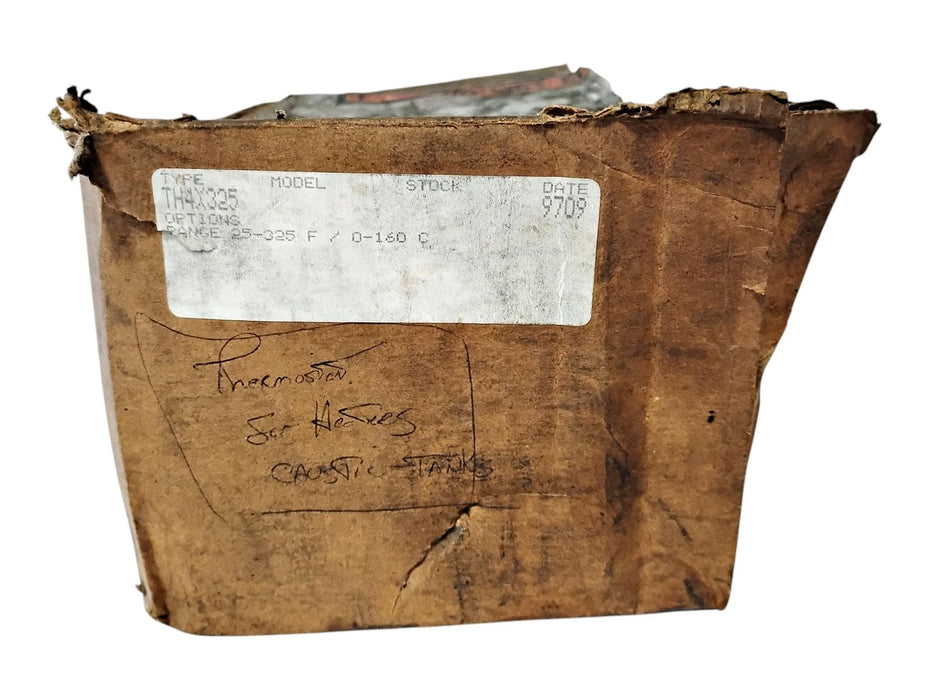 TYPE MODEL STOCK DATE
TH4X325 9709
OPTIONS
RANGE 25-325 F / 0-160 C
Thermostat
for Heaters
CAUSTIC-TANKS